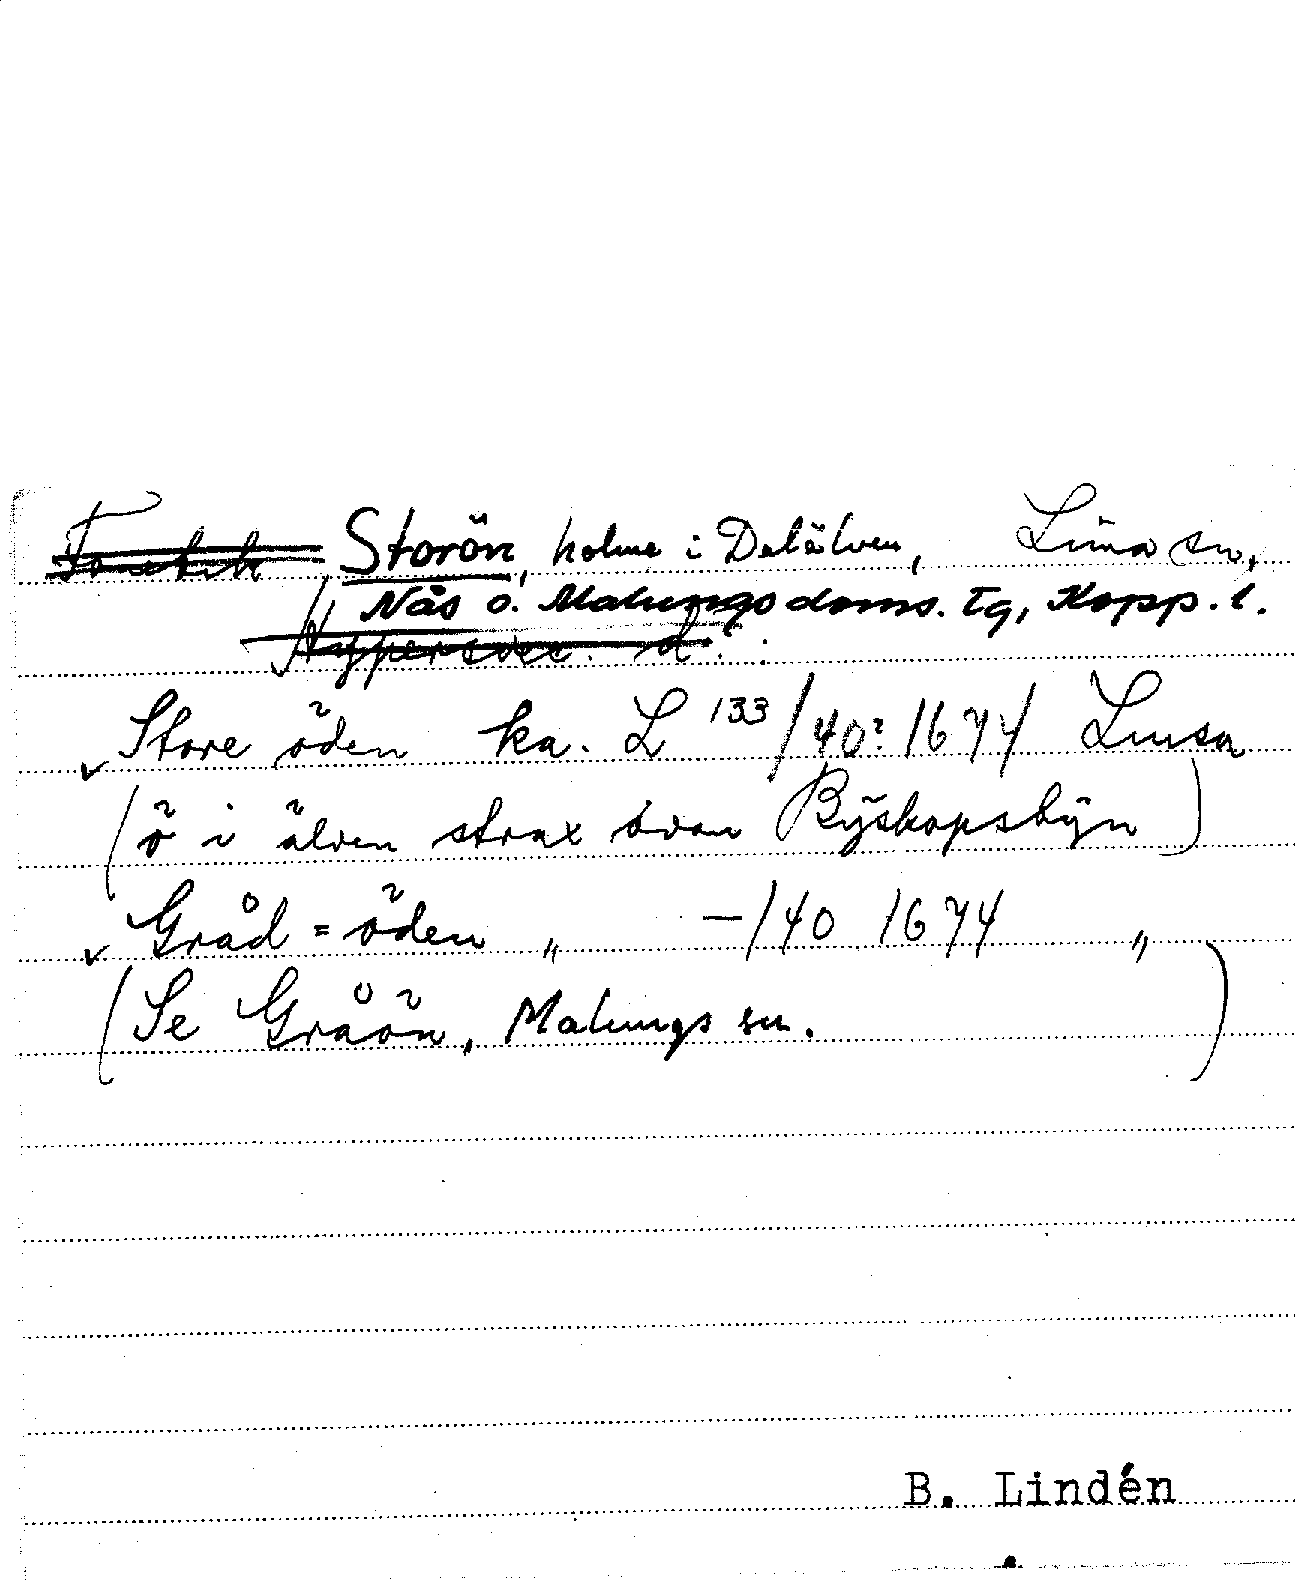 Storön, holme i Dalälven, Lima sn,
Nås o. Malungs doms. tg, Kopp. l.
Store öden ka. L 133/40: 1674 Limsa
(ö i älven strax ovan Byskopsbyn)
Gråd=öden „ —/40 1674 „
(Se Gråön, Malungs sn.)
B. Lindén